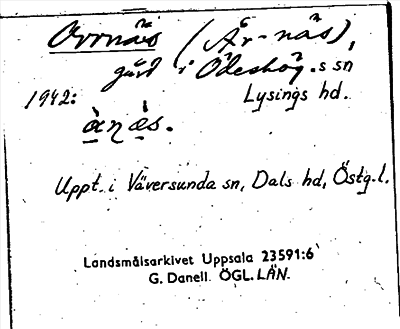 Orrnäs (År-näs),
gård i Ödeshög.s sn
Lysings hd.
1942:
àṇæ̀s.
Uppt. i Väversunda sn, Dals hd, Östg.l.
Landsmålsarkivet Uppsala 23591:6
G. Danell. ÖGL. LÄN.